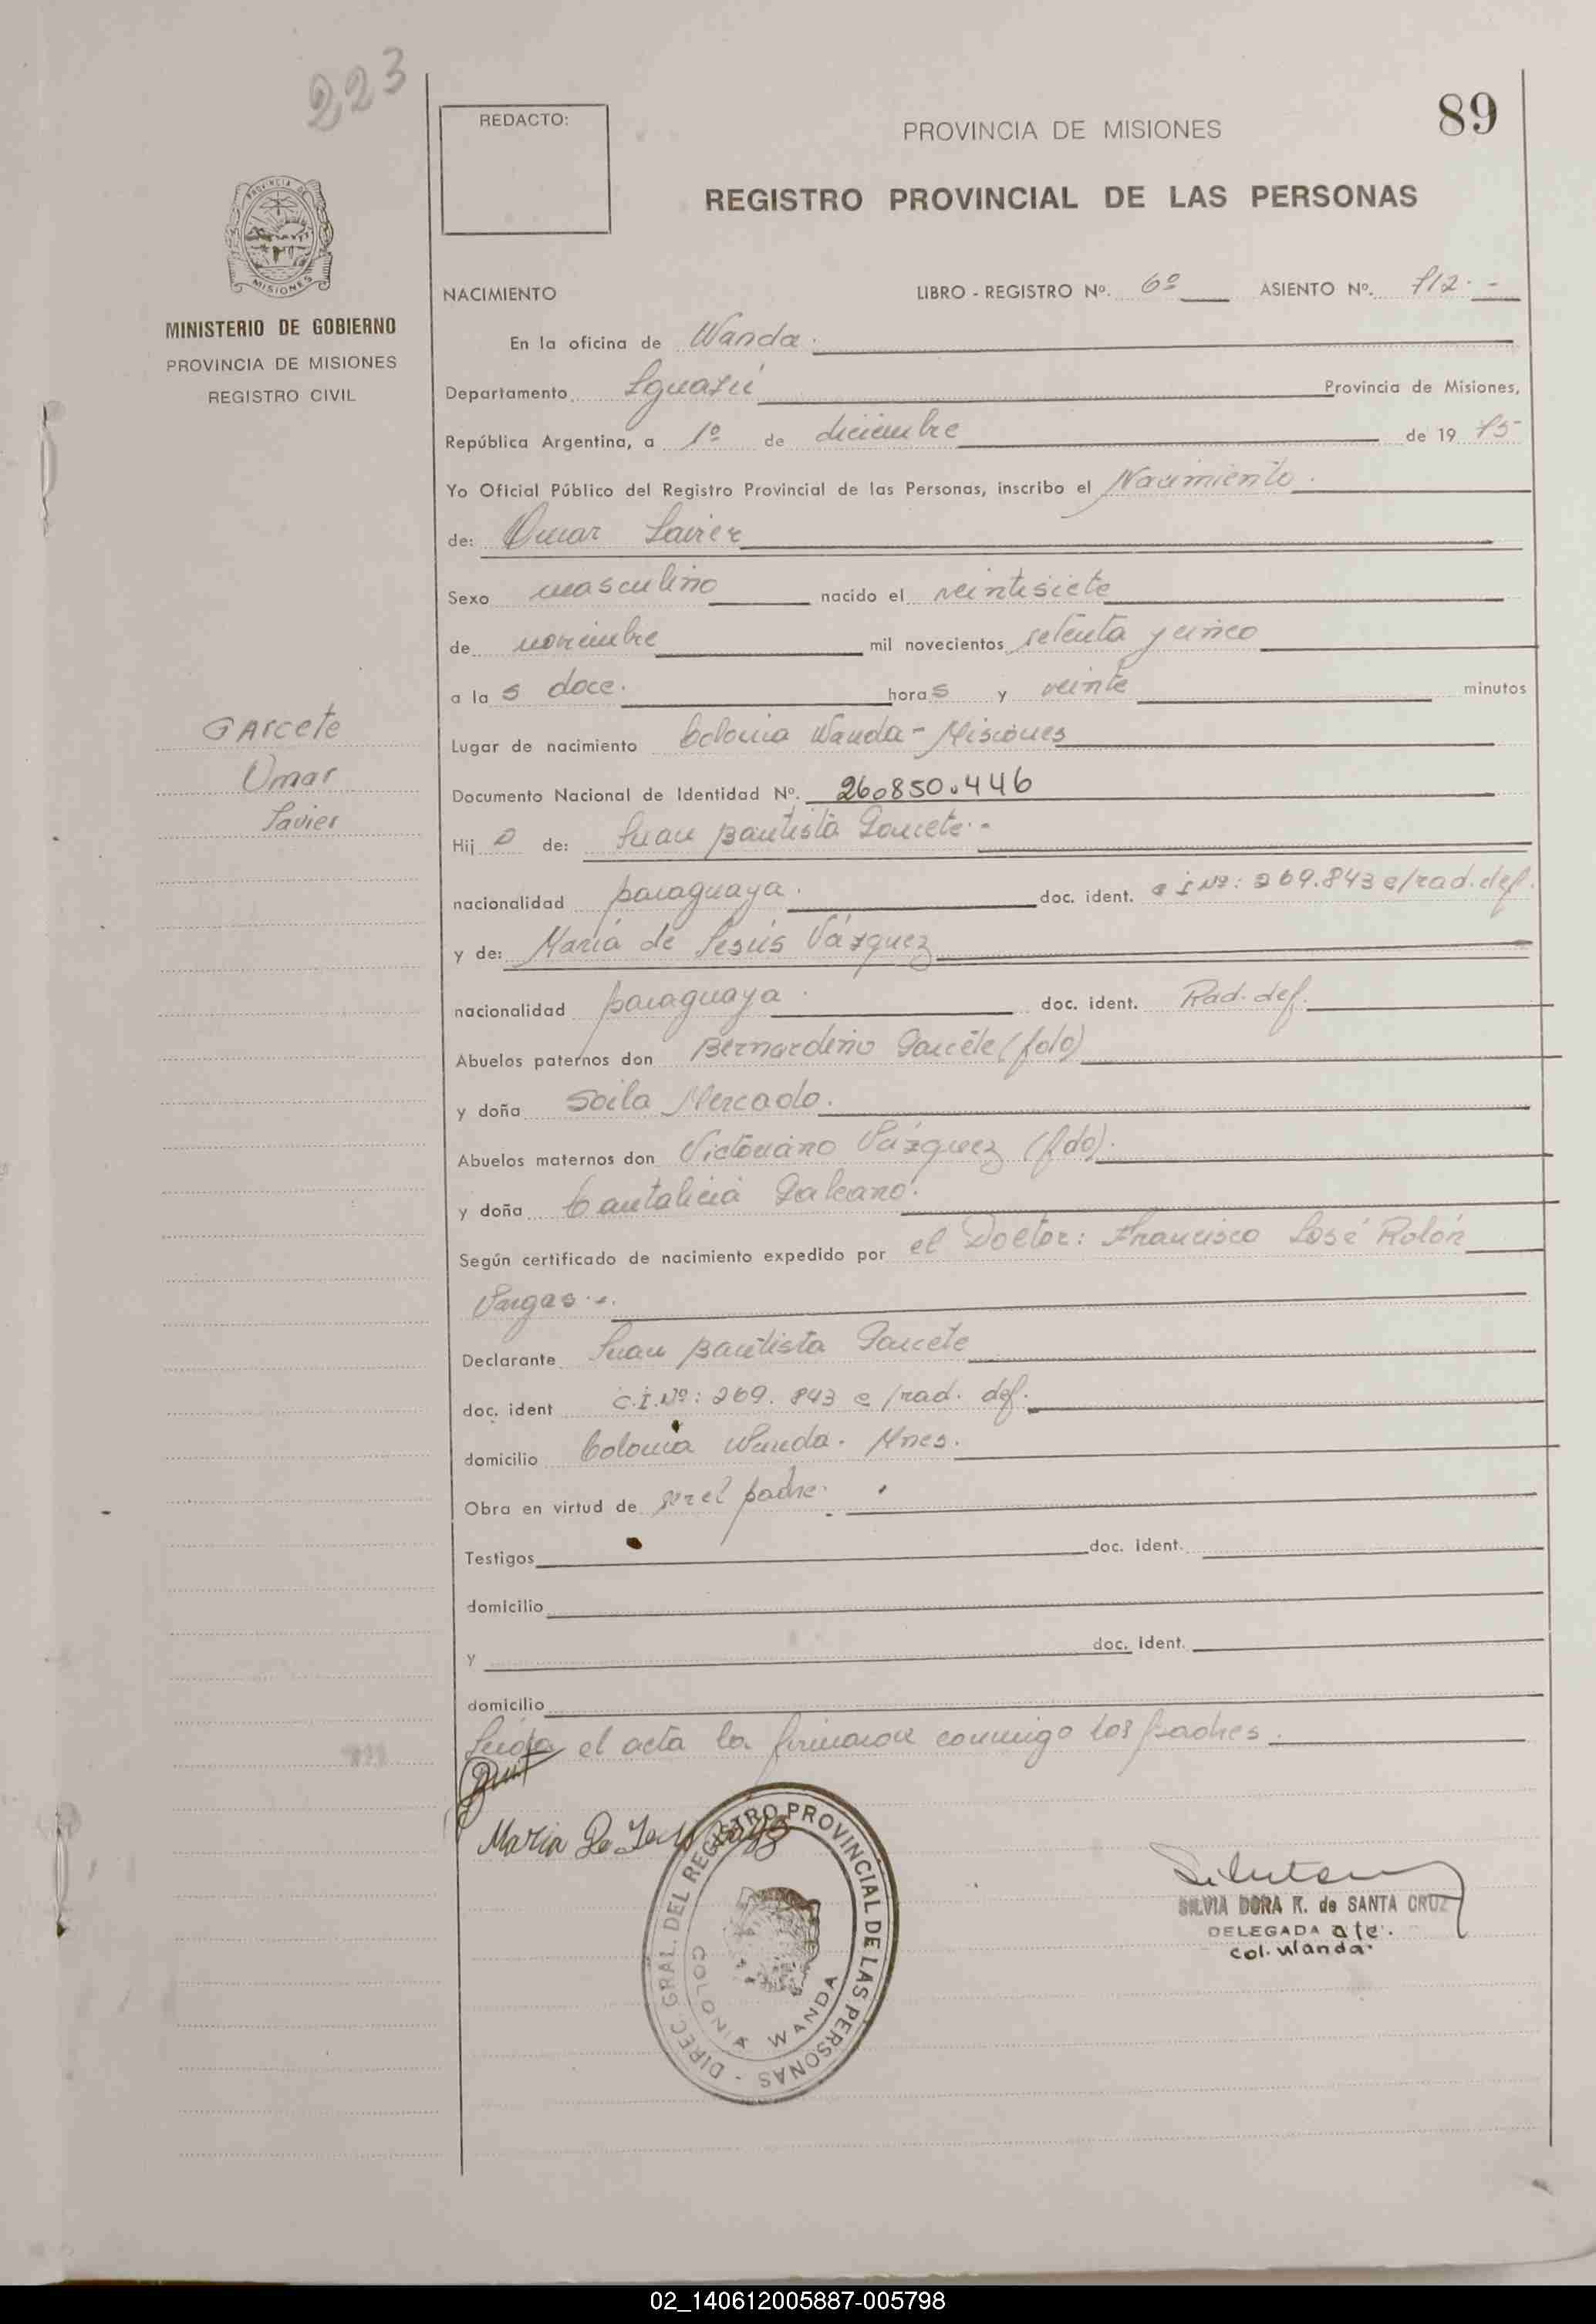 223
REDACTO:
PROVINCIA DE MISIONES
89
REGISTRO PROVINCIAL DE LAS PERSONAS
PROVINCIA DE
MISIONES
MINISTERIO DE GOBIERNO
PROVINCIA DE MISIONES
REGISTRO CIVIL
NACIMIENTO LIBRO - REGISTRO Nº. 6º ASIENTO Nº. 712.-
En la oficina de Wanda.
Departamento Iguazú Provincia de Misiones,
República Argentina, a 1º de diciembre de 19 75
Yo Oficial Público del Registro Provincial de las Personas, inscribo el Nacimiento.
de: Omar Javier
Sexo masculino nacido el veintisiete
de noviembre mil novecientos setenta y cinco
a la s doce. hora s y veinte minutos
Garcete
Omar
Javier
Lugar de nacimiento Colonia Wanda - Misiones
Documento Nacional de Identidad Nº. 260850.446
Hij o de: Juan Bautista Garcete.-
nacionalidad paraguaya. doc. ident. c i Nº: 269.843 c/rad.def.
y de: María de Jesús Vázquez
nacionalidad paraguaya. doc. ident. Rad. def.
Abuelos paternos don Bernardino Garcete (fdo)
y doña Soila Mercado.
Abuelos maternos don Victoriano Vázquez (fdo).
y doña Cantalicia Galeano.
Según certificado de nacimiento expedido por el Doctor: Francisco José Rolón
Vargas.-.
Declarante Juan Bautista Garcete
doc. ident C.I.Nº: 269.843 c/rad. def.
domicilio Colonia Wanda. Mnes.
Obra en virtud de ser el padre.
Testigos doc. ident.
domicilio
y doc. ident.
domicilio
Leída el acta la firmaron conmigo los padres.
Maria De
DIREC. GRAL. DEL REGISTRO PROVINCIAL DE LAS PERSONAS -
COLONIA WANDA
SILVIA DORA K. de SANTA CRUZ
DELEGADA a/c.
col. Wanda.
02_140612005887-005798